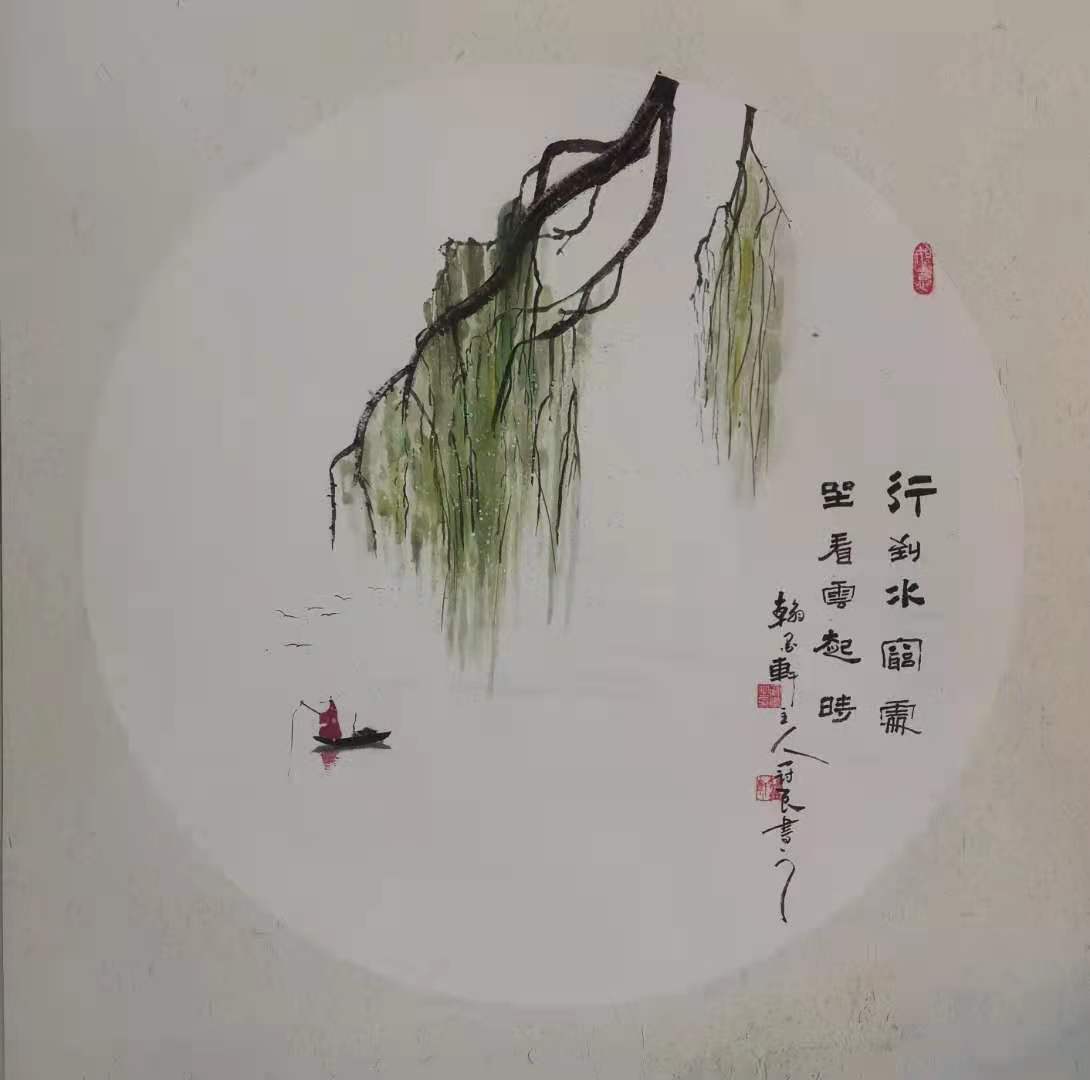 行到水窮處
坐看雲起時
翰墨軒主人冠民書